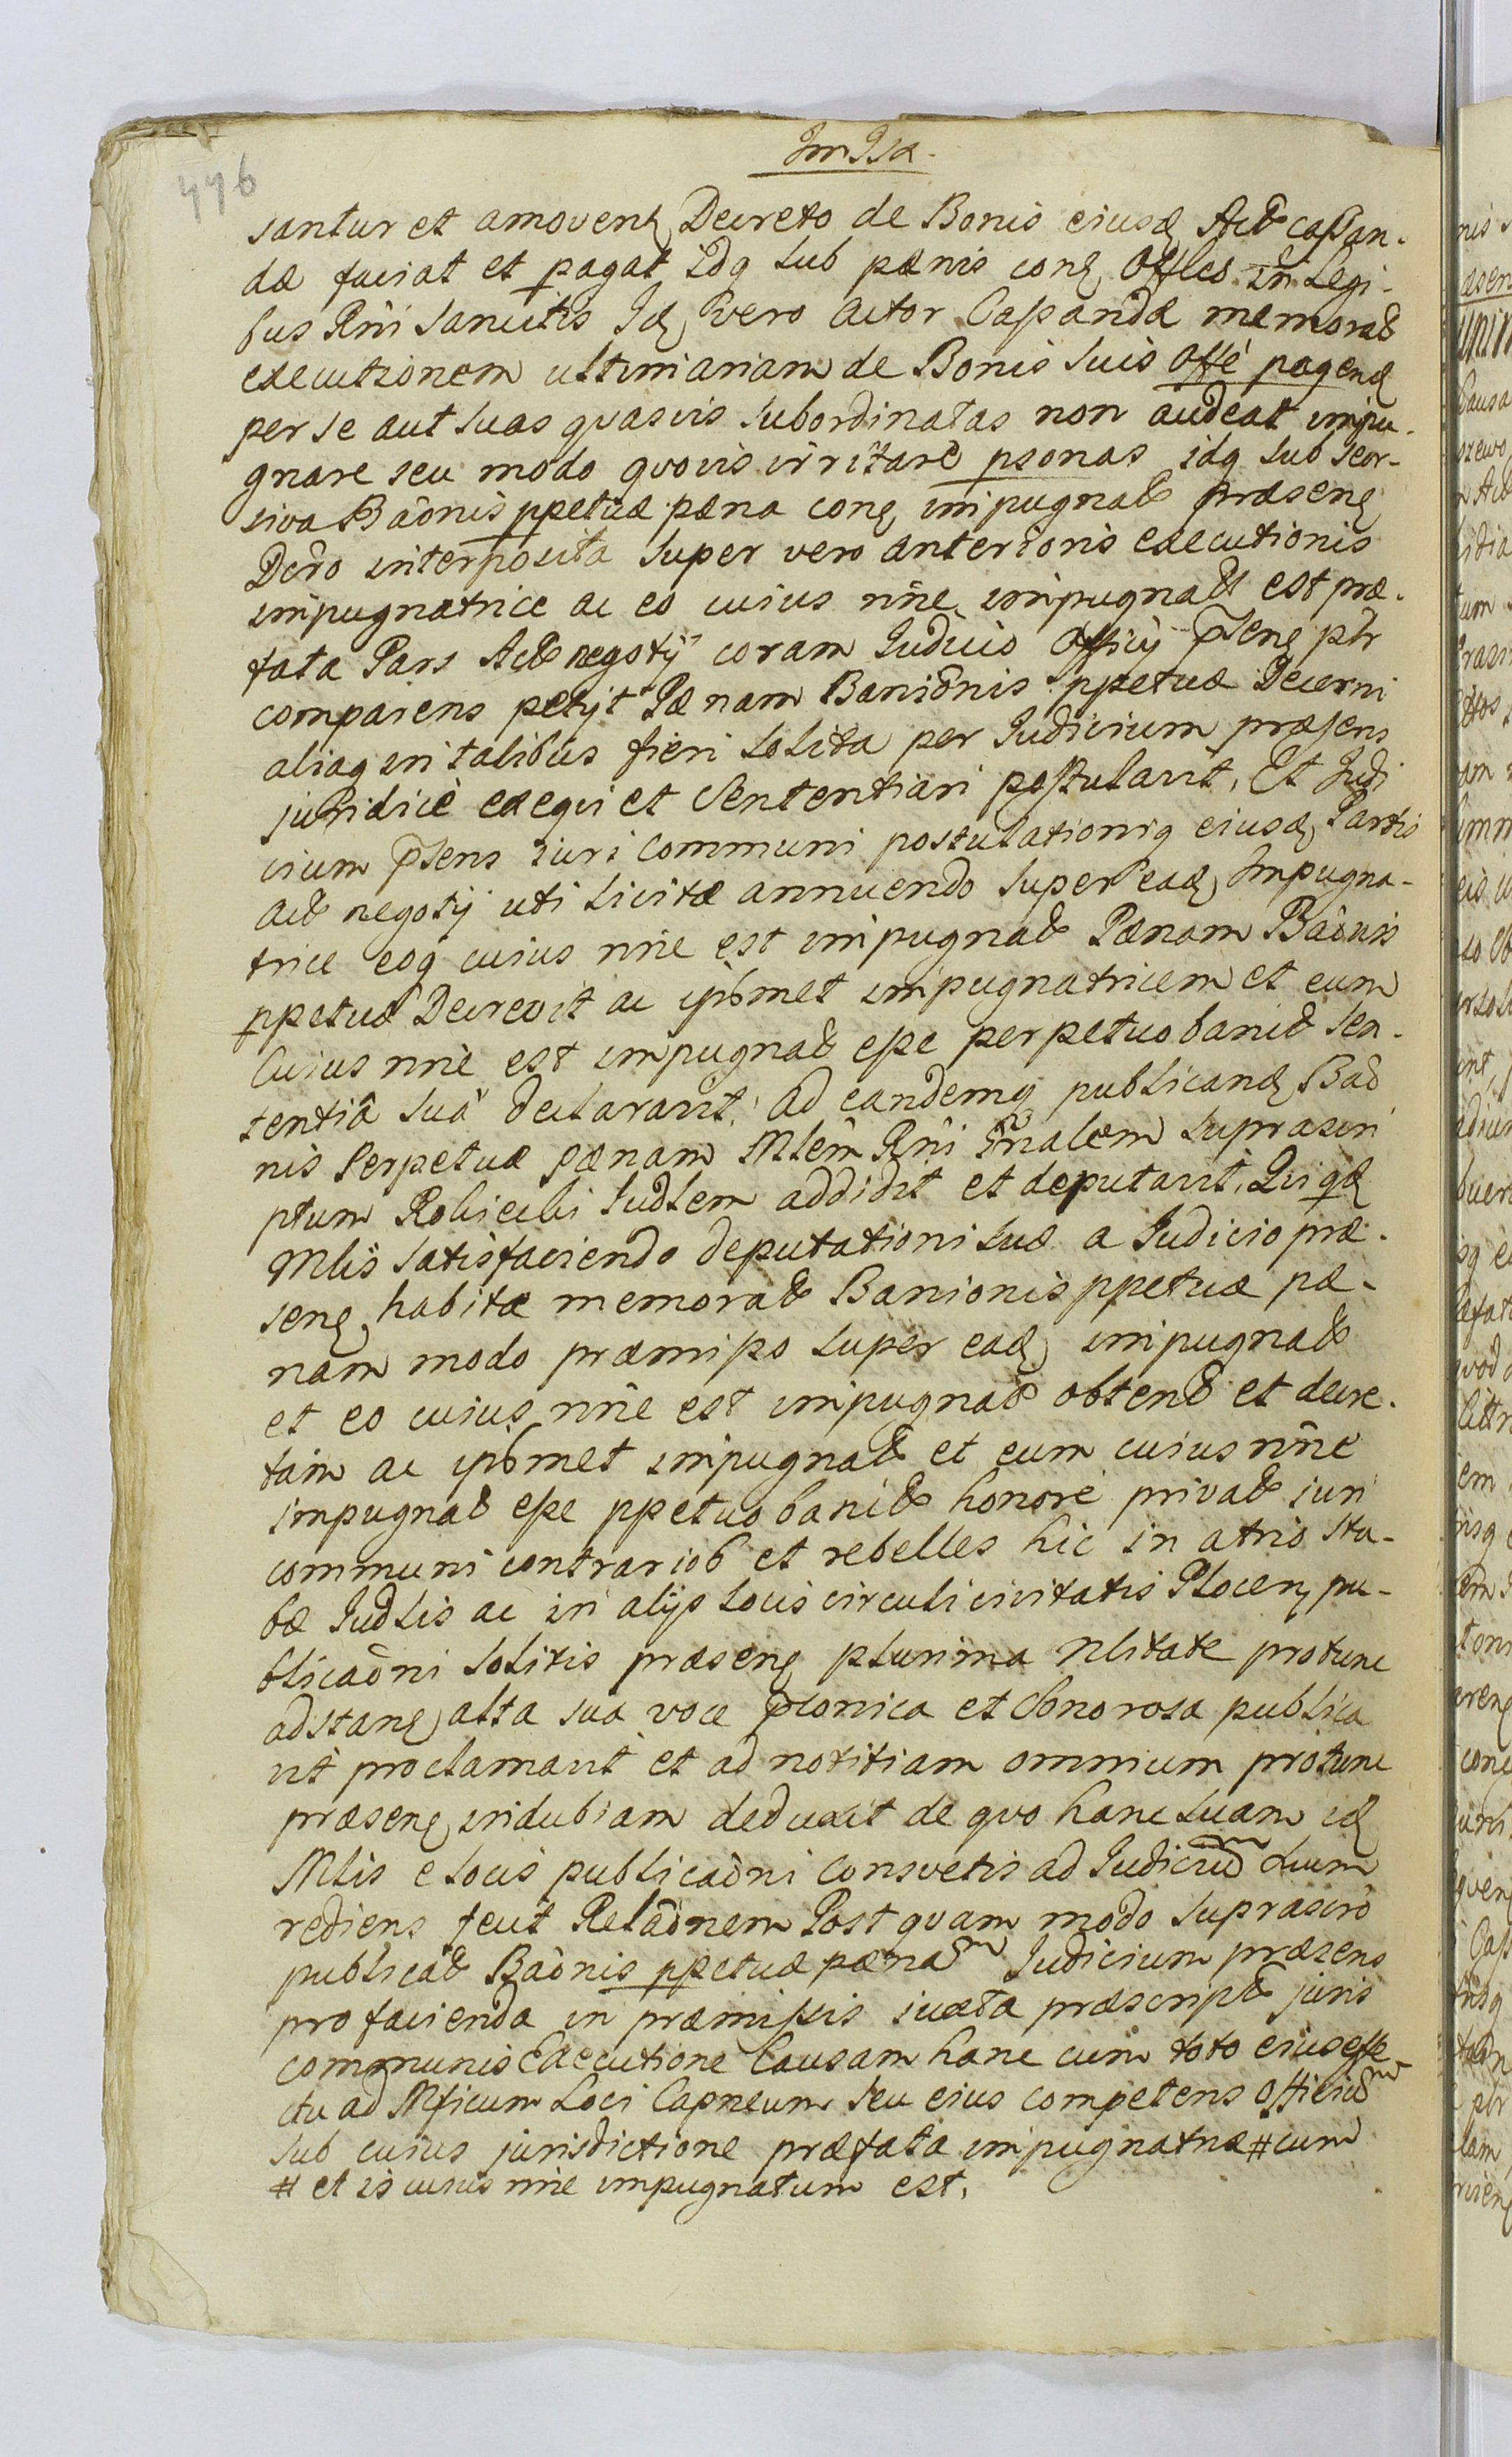 476
santur et amovenꝫ Decreto de Bonis eiusꝺ Act cassan-
dæ faciat et pagat idq sub pænis conꝫ Offles in Legi-
bus Rñi sancitis Idꝫ vero Actor Cassandæ memorat
executionem ultimariam de Bonis suis Offe pagenꝺ
per se aut suas qvasvis subordinatas non audeat impu-
gnare seu modo qvovis irritare psonas idq sub seor-
siva Bãonis ppetuæ pæna conꝫ impugnat præsenꝫ
Dcro interposita super vero anterioris executionis
impugnatrice ac eo cuius nñe impugnat est præ-
fata Pars Act negotÿ coram Iudicio Officÿ p̃senꝫ ptr
comparens petÿt Pænam Baniõnis ppetuæ Decerni
aliaq in talibus fieri solita per Iudicium præsens
juridicè exeqvi et Sententiari postulavit, Et Iudi
cium p̃sens iuri communi postulationiq eiusꝺ Partis
act negotÿ uti licitæ annuendo super eaꝺ Impugna-
trice eoq cuius nñe est impugnat Pænam Bãonis
ppetuæ Decrevit ac ipsmet impugnatricem et eum
Cuius nñe est impugnat esse perpetuo banit sen-
tentiâ suâ declaravit, ad eandemq publicanꝺ Bao
nis Perpetuæ pænam Mlem Rñi Gñalem suprascri
ptum Robicibi Iudlem addidit et deputavit, Qui qꝺ
Mlis satisfaciendo deputationi suæ a Iudicio præ-
senꝫ habitæ memorat Banionis ppetuæ pæ-
nam modo præmisso super eaꝺ impugnat
et eo cuius nñe est impugnat obtent et decre-
tam ac ipsmet impugnat et eum cuius nñe
impugnat esse ppetuo banit honore privat iuri
communi contrarios et rebelles hic in atrio stu-
bæ Iudlis ac in alÿs locis circuli civitatis Plocenꝫ pu-
blicaõni solitis præsenꝫ plurima Nlitate protunc
adstanꝫ alta sua voce p̃conica et sonorosa publica
vit proclamavit et ad notitiam omnium protunc
præsenꝫ indubiam deduxit de qvo hanc suam idꝫ
Mlis e locis publicaõni consvetis ad Iudicium
rediens fecit Relaõnem Post qvam modo suprascro
publicat Bãonis ppetuæ pænam Iudicium præsens
pro facienda in præmissis iuxta præscript juris
communis Executione Causam hanc cum toto eius effe
ctu ad Mficum Loci Capneum seu eius competens Officium
sub cuius jurisdictione præfata impugnatrix # cum
# et is cuius nñe impugnatum est.